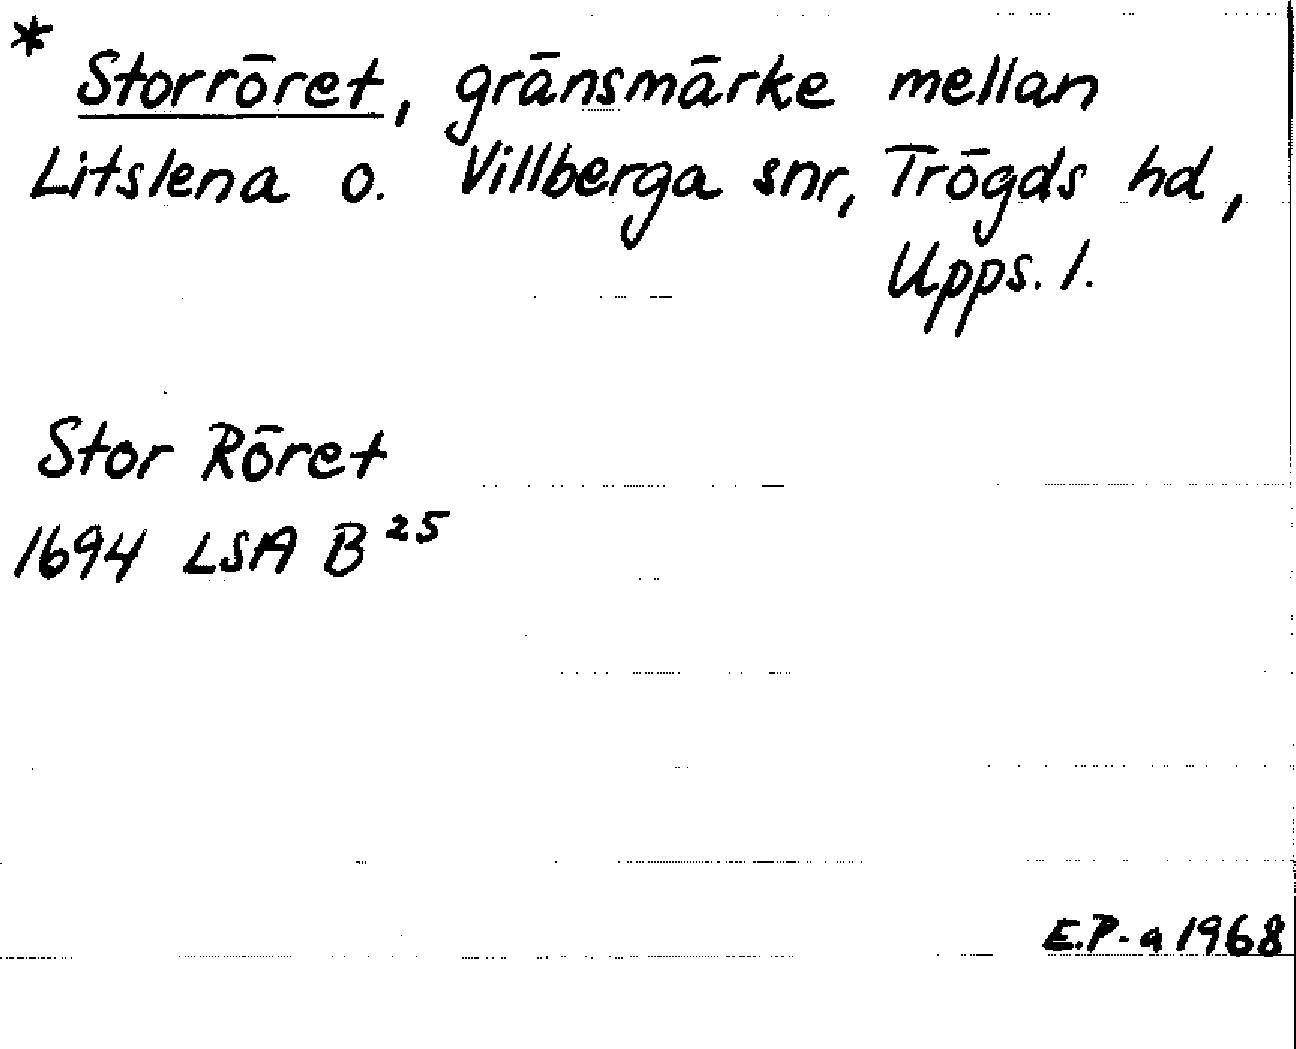 * Storröret, gränsmärke mellan
Litslena o. Villberga snr, Trögds hd,
Upps. l.
Stor Röret
1694 LSA B²⁵
E.P-a 1968